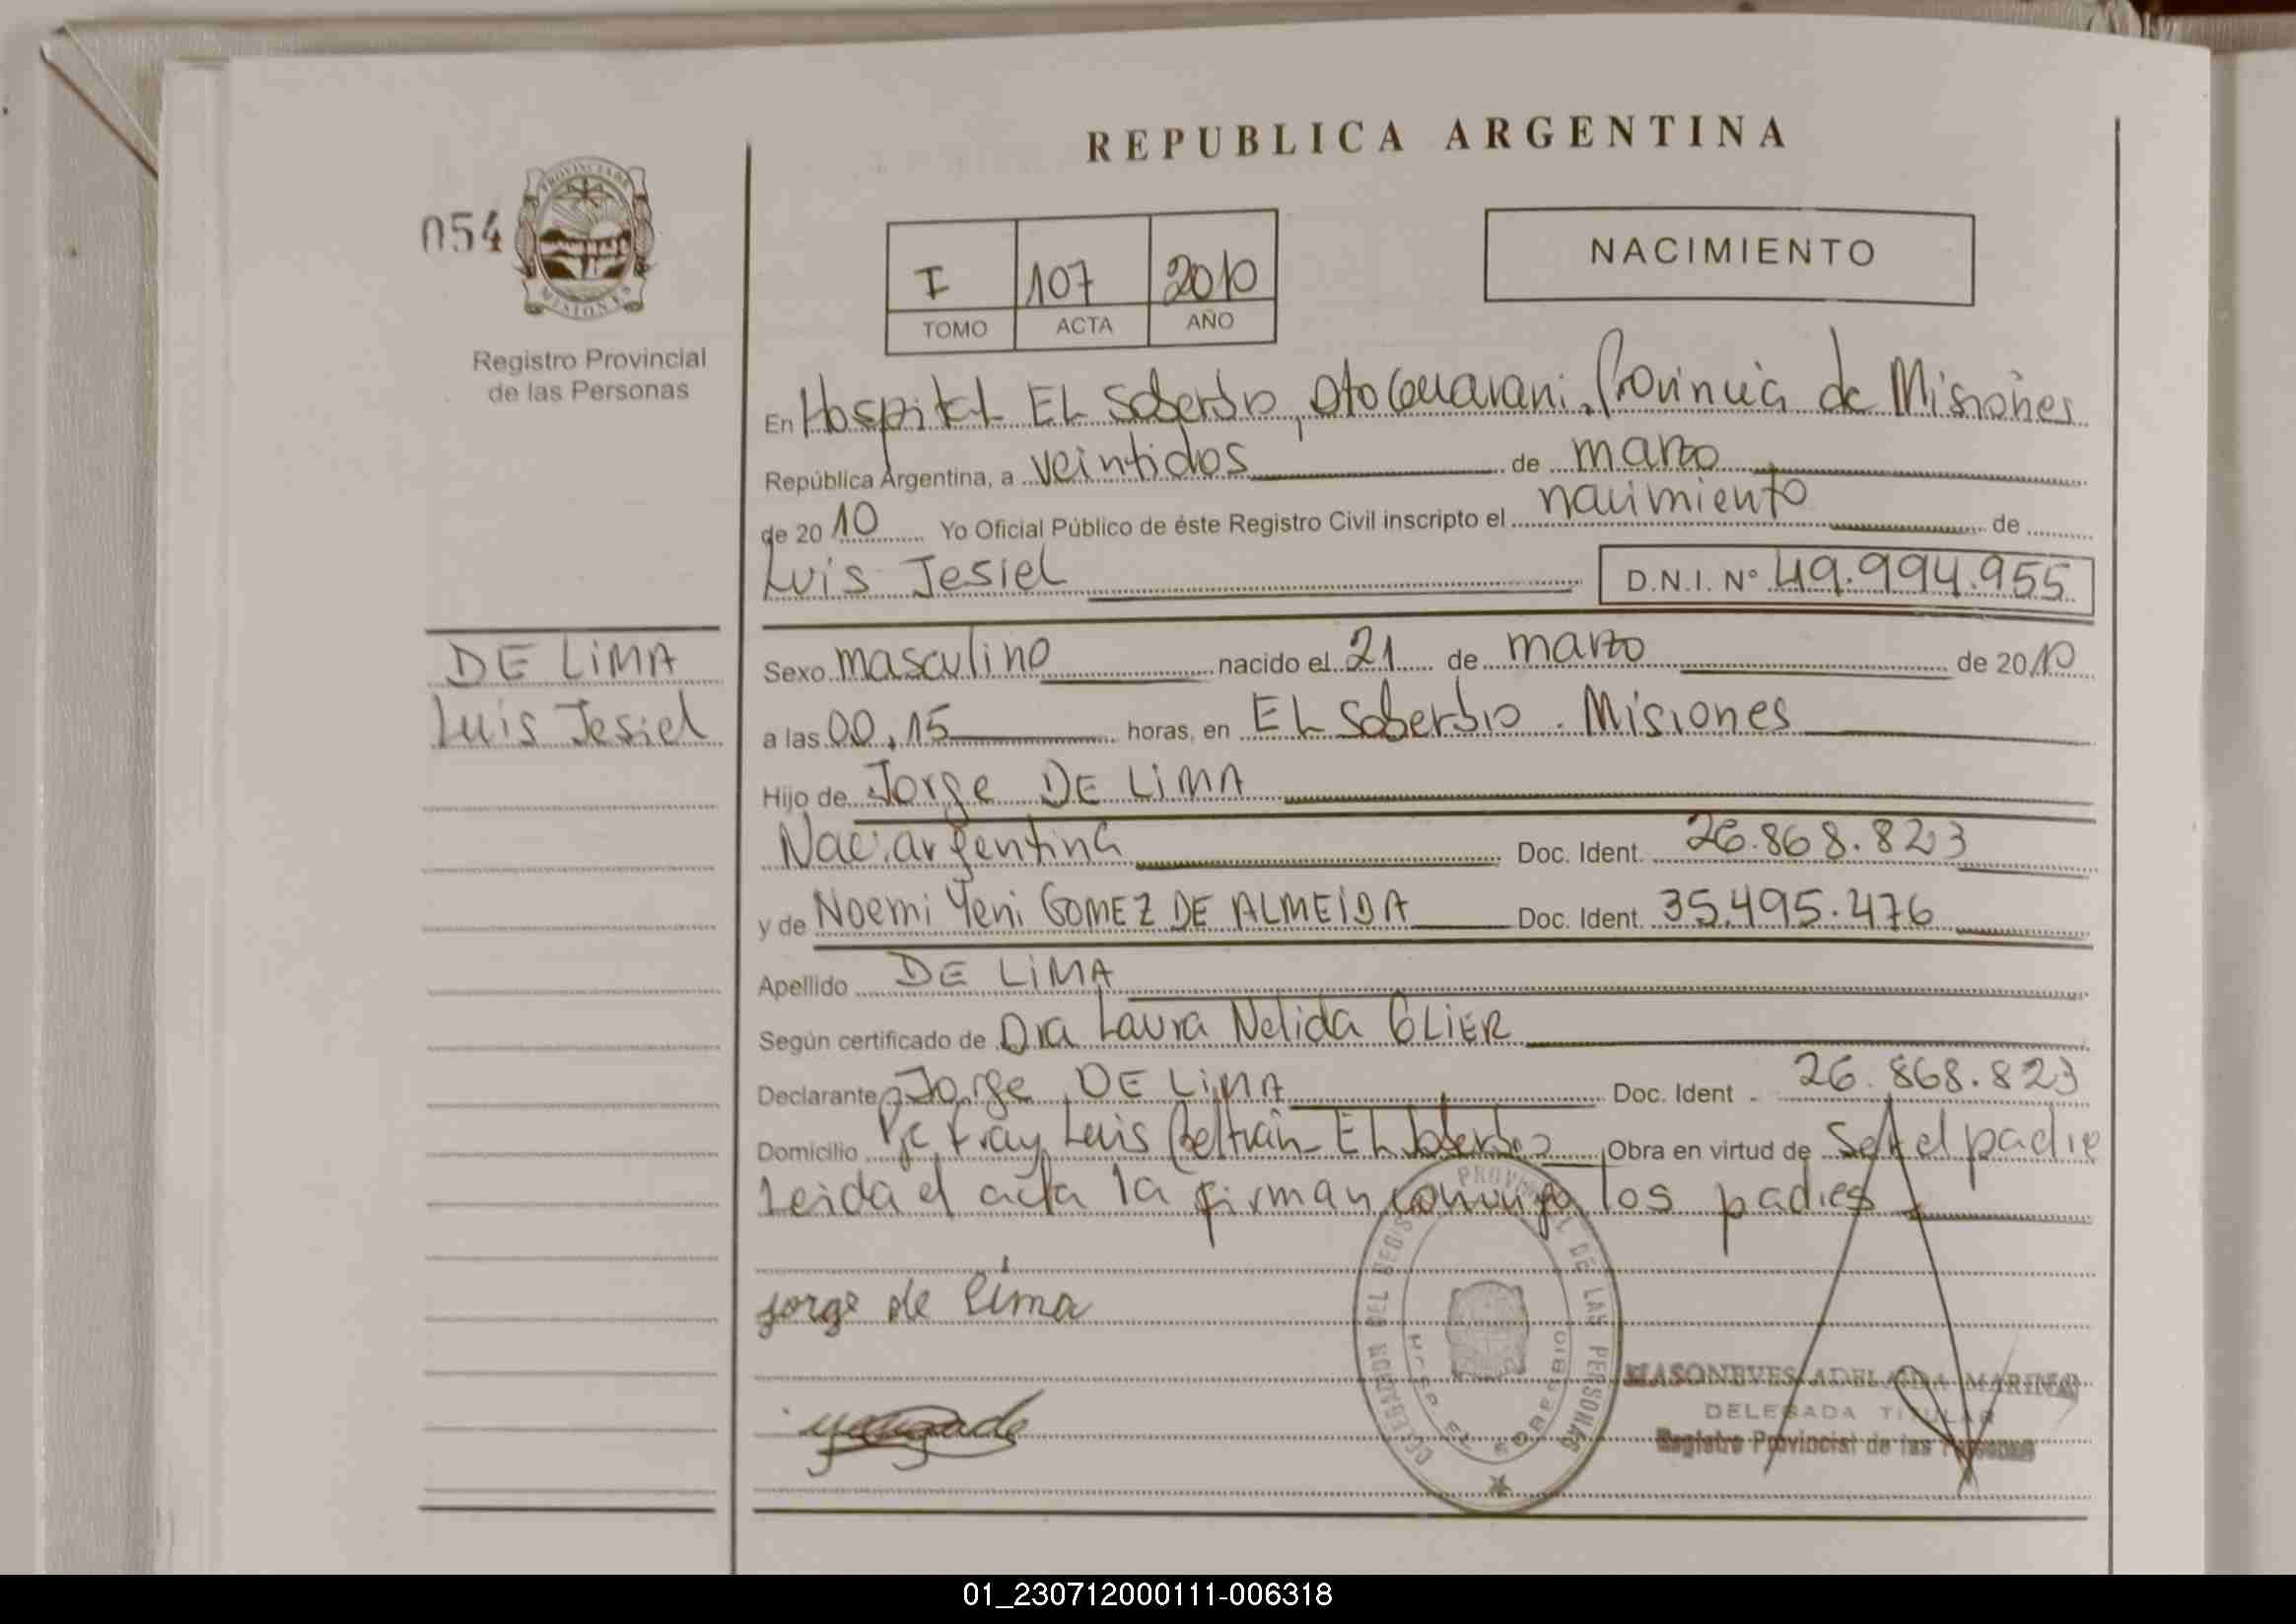 REPUBLICA ARGENTINA
054
PROVINCIA DE
MISIONES
Registro Provincial
de las Personas
I 107 2010
TOMO ACTA AÑO
NACIMIENTO
En Hospital EL Soberbio, Dto Guarani. Provincia de Misiones
República Argentina, a veintidos de marzo
de 2010 Yo Oficial Público de éste Registro Civil inscripto el nacimiento de
Luis Jesiel D.N.I. Nº 49.994.955
DE LIMA
Luis Jesiel
Sexo masculino nacido el 21 de marzo de 2010
a las 00,15 horas, en EL Soberbio. Misiones
Hijo de Jorge DE LIMA
Nac. argentina Doc. Ident. 26.868.823
y de Noemi Yeni GOMEZ DE ALMEIDA Doc. Ident. 35.495.476
Apellido DE LIMA
Según certificado de Dra Laura Nelida GLIER
Declarante Jorge DE LIMA Doc. Ident - 26.868.823
Domicilio Pje Fray Luis Beltrán - EL Soberbio Obra en virtud de Ser el padre
Leida el acta la firman conmigo los padres
jorge de lima
DELEGACION DEL REGISTRO PROVINCIAL DE LAS PERSONAS
HOSP. EL SOBERBIO
MASONEVES ADELAIDA MARINA
DELEGADA TITULAR
Registro Provincial de las Personas
01_230712000111-006318